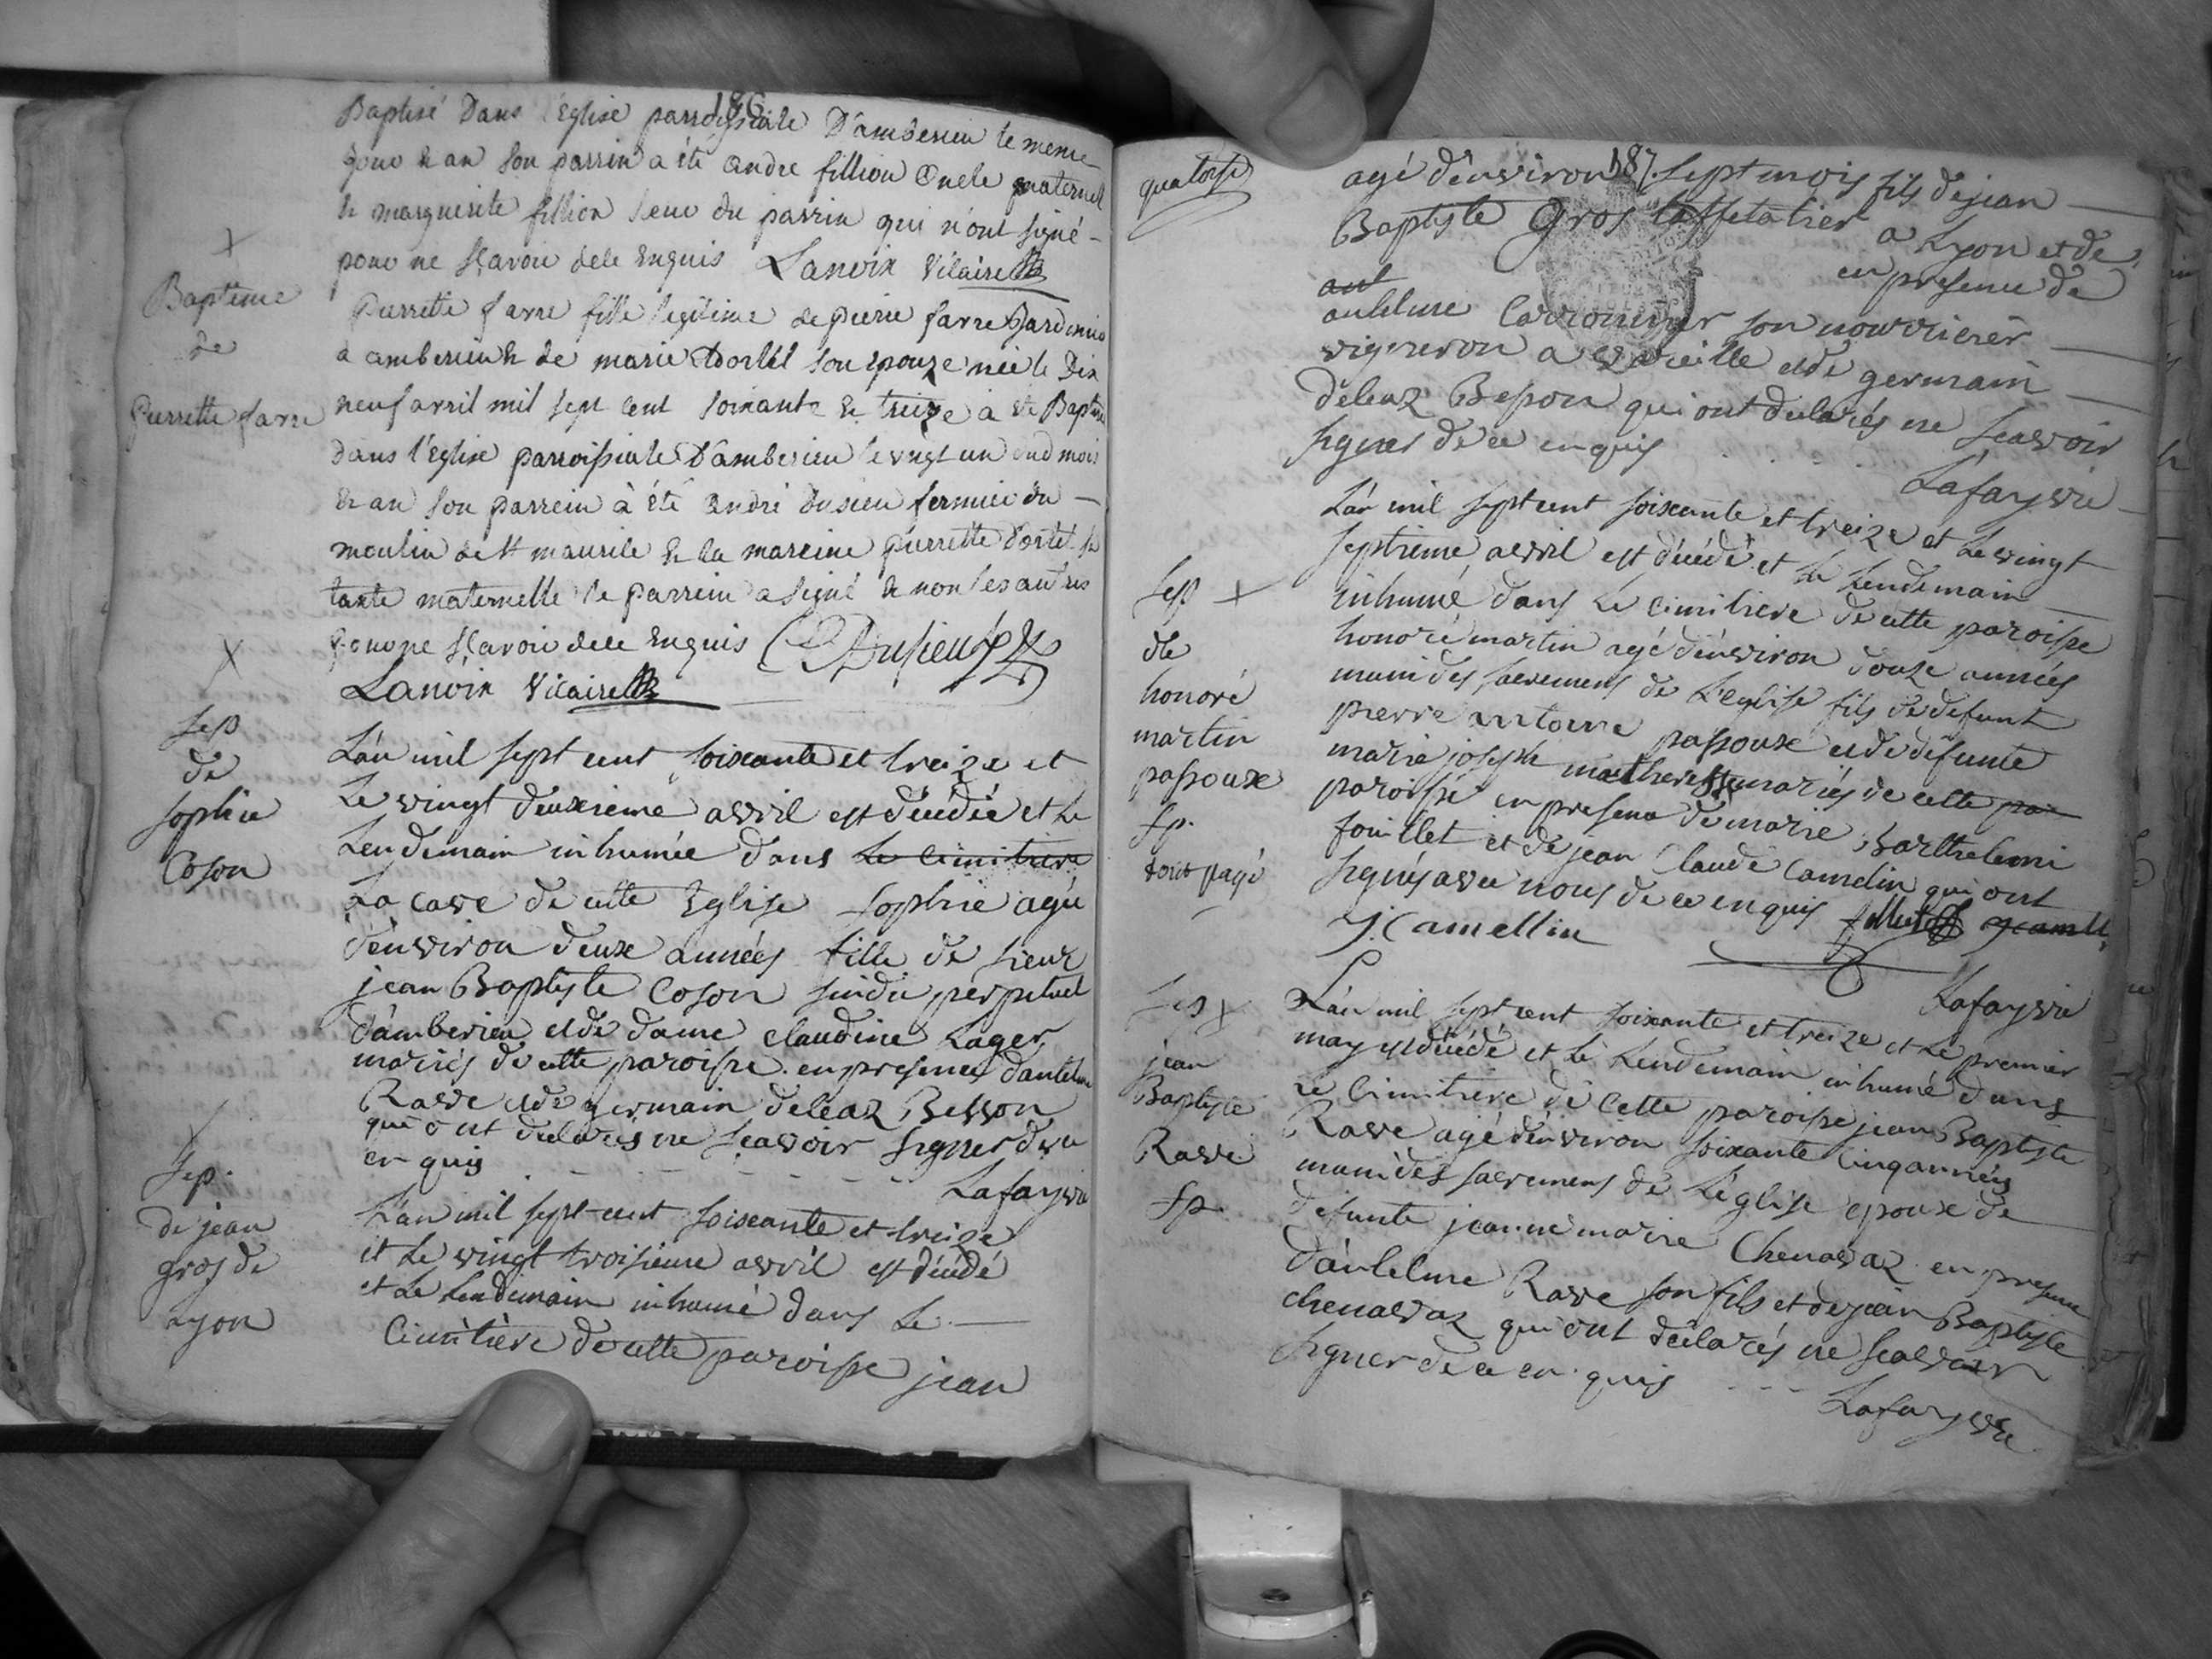 186
Baptisé Dans l'Eglise parroissiale D'amberieu le meme
jour & an son parrin a été andré fillion Oncle paternel
& marguerite fillion seur du parrin qui n'ont signé -
pour ne sçavoir dele Enquis Lanoix Vicaire
+
Bapteme
de
Pierrette farre
Pierrette farre fille legitime de pierre farre Jardinier
a amberieu & de marie Dortel son epouze née le Dix
neuf avril mil sept cent soixante & treize à été Baptisé
dans l'Eglise parroissiale D'amberieu le vingt un dud mois
& an son parrein à été andré Dusieu fermier du -
moulin de St maurile & la mareine pierrette Dortel sa
tante maternelle le parrein a signé & non les autres
pour ne sçavoir dele Enquis Dusieu
Lanoix Vicaire
+
sep
de
sophie
Coson
L'an mil sept cent soixante et treize et
Le vingt deuxieme avril est décédée et le
Lendemain inhumée dans le cimitiere
La cave de cette Eglise sophie agée
d'environ deux années fille de sieur
jean Baptiste Coson sindic perpetuel
d'amberieu et de dame claudine Lager
mariés de cette paroisse en presence d'antelme
Rave et de germain deleaz Besson
qui ont declarés ne scavoir signer de ce
en quis Lafaysse
+
sep.
de jean
gros de
Lyon
L'an mil sept cent soixante et treize
et Le vingt troisieme avril est décédé
et Le Lendemain inhumé dans Le
Cimitière de cette paroisse jean
187.
quatorse
agé d'environ sept mois fils de jean
Baptiste Gros taffetatier a Lyon et de
en presence de
ant
antelme son nourricier
vigneron a et de germain
deleaz Besson qui ont declarés ne scavoir
signer de ce enquis
Lafaysse
sep +
de
honoré
martin
passoux
sp.
tout payé
L'an mil sept cent soixante et treize et Le vingt
septieme avril est décédé et Le Lendemain
inhumé dans Le cimitiere de cette paroisse
honoré martin agé d'environ douze années
muni des sacremens de L'eglise fils de defunt
pierre antoine passoux et de defunte
marie joseph mariés de cette par
paroisse en presence de marie Barthelemi
fouillet et de jean Claude Camelin qui ont
signés avec nous de ce enquis
J. Camellin
Lafaysse
sep +
jean
Baptiste
Rave
sp.
L'an mil sept cent soixante et treize et Le premier
may est décédé et Le Lendemain inhumé dans
Le Cimitiere de Cette paroisse jean Baptiste
Rave agé d'environ soixante Cinq années
muni des sacremens de L'église epoux de
defunte jeanne marie Chenavaz en presence
d'antelme Rave son fils et de jean Baptiste
chenavaz qui ont déclarés ne scavoir
signer de ce en quis
Lafaysse